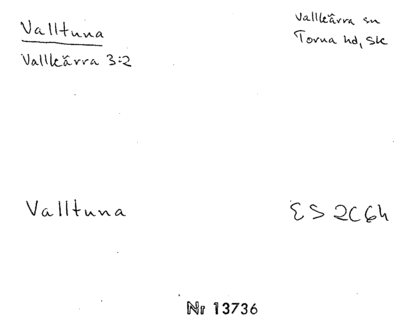 Valltuna
Vallkärra 3:2
Vallkärra sn
Torna hd, Sk
Valltuna
ES 2C6h
Nr 13736